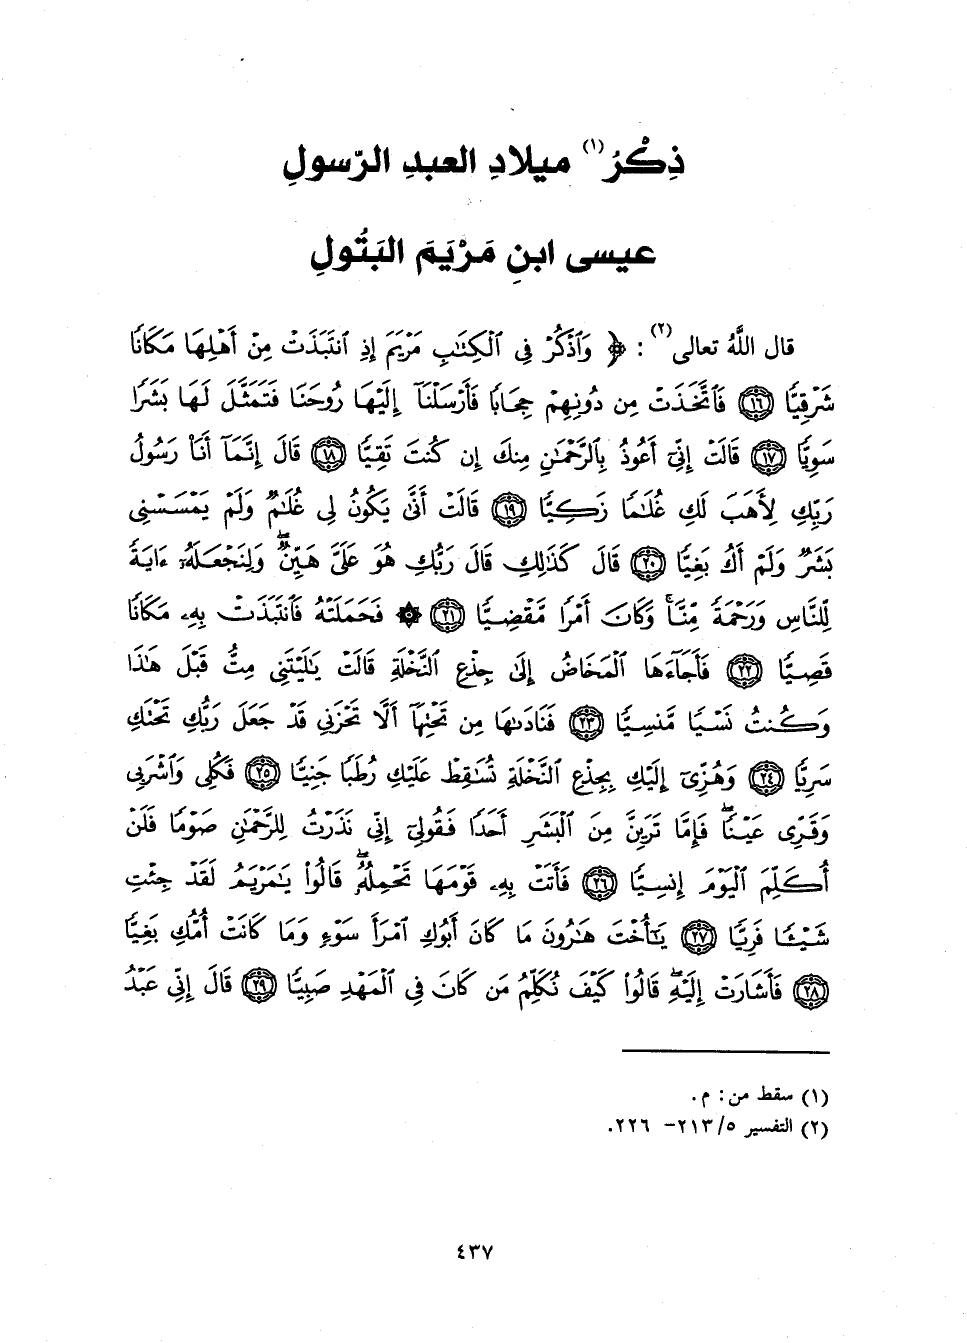 ذِكْرُ (١) ميلادِ العبدِ الرّسولِ
عيسى ابنِ مَرْيَمَ البَتُولِ
قال اللَّهُ تعالى(٢) : ﴿ وَٱذْكُرْ فِى ٱلْكِتَٰبِ مَرْيَمَ إِذِ ٱنتَبَذَتْ مِنْ أَهْلِهَا مَكَانًا
شَرْقِيًّا ١٦ فَٱتَّخَذَتْ مِن دُونِهِمْ حِجَابًا فَأَرْسَلْنَآ إِلَيْهَا رُوحَنَا فَتَمَثَّلَ لَهَا بَشَرًا
سَوِيًّا ١٧ قَالَتْ إِنِّىٓ أَعُوذُ بِٱلرَّحْمَٰنِ مِنكَ إِن كُنتَ تَقِيًّا ١٨ قَالَ إِنَّمَآ أَنَا۠ رَسُولُ
رَبِّكِ لِأَهَبَ لَكِ غُلَٰمًا زَكِيًّا ١٩ قَالَتْ أَنَّىٰ يَكُونُ لِى غُلَٰمٌ وَلَمْ يَمْسَسْنِى
بَشَرٌ وَلَمْ أَكُ بَغِيًّا ٢٠ قَالَ كَذَٰلِكِ قَالَ رَبُّكِ هُوَ عَلَىَّ هَيِّنٌ ۖ وَلِنَجْعَلَهُۥٓ ءَايَةً
لِّلنَّاسِ وَرَحْمَةً مِّنَّا ۚ وَكَانَ أَمْرًا مَّقْضِيًّا ٢١ ۞ فَحَمَلَتْهُ فَٱنتَبَذَتْ بِهِۦ مَكَانًا
قَصِيًّا ٢٢ فَأَجَآءَهَا ٱلْمَخَاضُ إِلَىٰ جِذْعِ ٱلنَّخْلَةِ قَالَتْ يَٰلَيْتَنِى مِتُّ قَبْلَ هَٰذَا
وَكُنتُ نَسْيًا مَّنسِيًّا ٢٣ فَنَادَىٰهَا مِن تَحْتِهَآ أَلَّا تَحْزَنِى قَدْ جَعَلَ رَبُّكِ تَحْتَكِ
سَرِيًّا ٢٤ وَهُزِّىٓ إِلَيْكِ بِجِذْعِ ٱلنَّخْلَةِ تُسَٰقِطْ عَلَيْكِ رُطَبًا جَنِيًّا ٢٥ فَكُلِى وَٱشْرَبِى
وَقَرِّى عَيْنًا ۖ فَإِمَّا تَرَيِنَّ مِنَ ٱلْبَشَرِ أَحَدًا فَقُولِىٓ إِنِّى نَذَرْتُ لِلرَّحْمَٰنِ صَوْمًا فَلَنْ
أُكَلِّمَ ٱلْيَوْمَ إِنسِيًّا ٢٦ فَأَتَتْ بِهِۦ قَوْمَهَا تَحْمِلُهُۥ ۖ قَالُوا۟ يَٰمَرْيَمُ لَقَدْ جِئْتِ
شَيْـًٔا فَرِيًّا ٢٧ يَٰٓأُخْتَ هَٰرُونَ مَا كَانَ أَبُوكِ ٱمْرَأَ سَوْءٍ وَمَا كَانَتْ أُمُّكِ بَغِيًّا
٢٨ فَأَشَارَتْ إِلَيْهِ ۖ قَالُوا۟ كَيْفَ نُكَلِّمُ مَن كَانَ فِى ٱلْمَهْدِ صَبِيًّا ٢٩ قَالَ إِنِّى عَبْدُ
(١) سقط من: م.
(٢) التفسير ٥/ ٢١٣- ٢٢٦.
٤٣٧